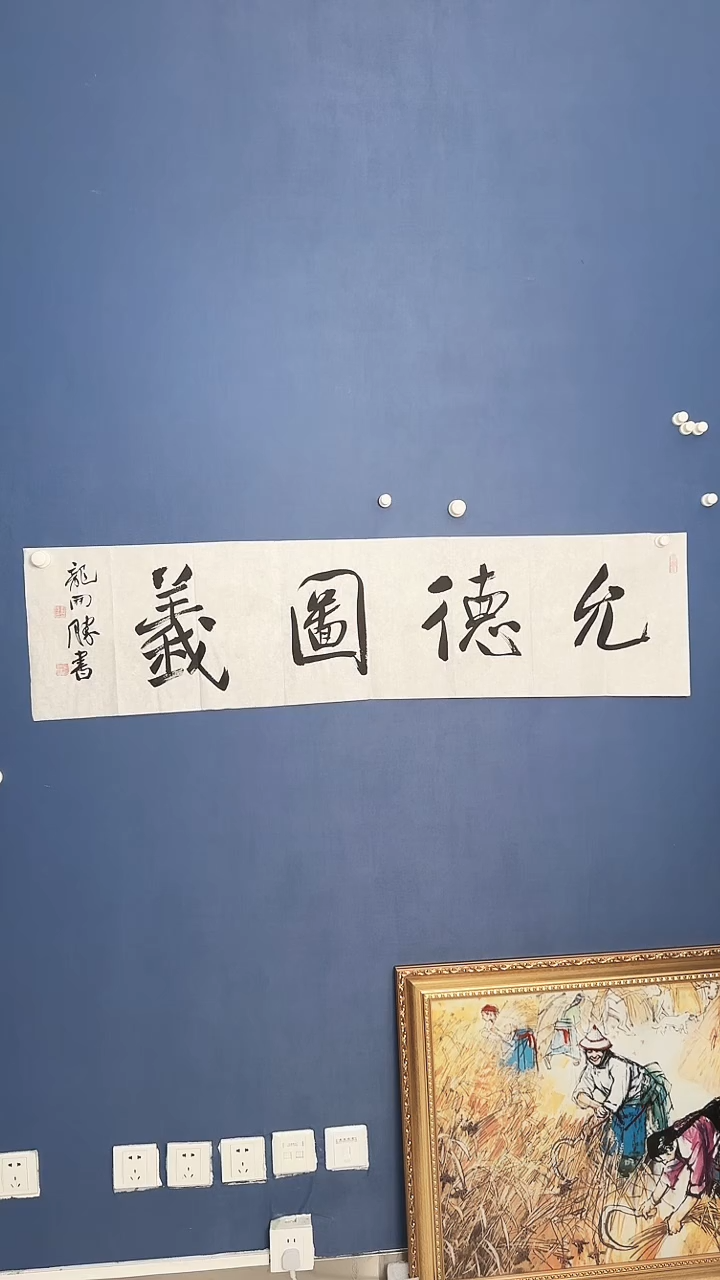 允德圖義
龍開勝書